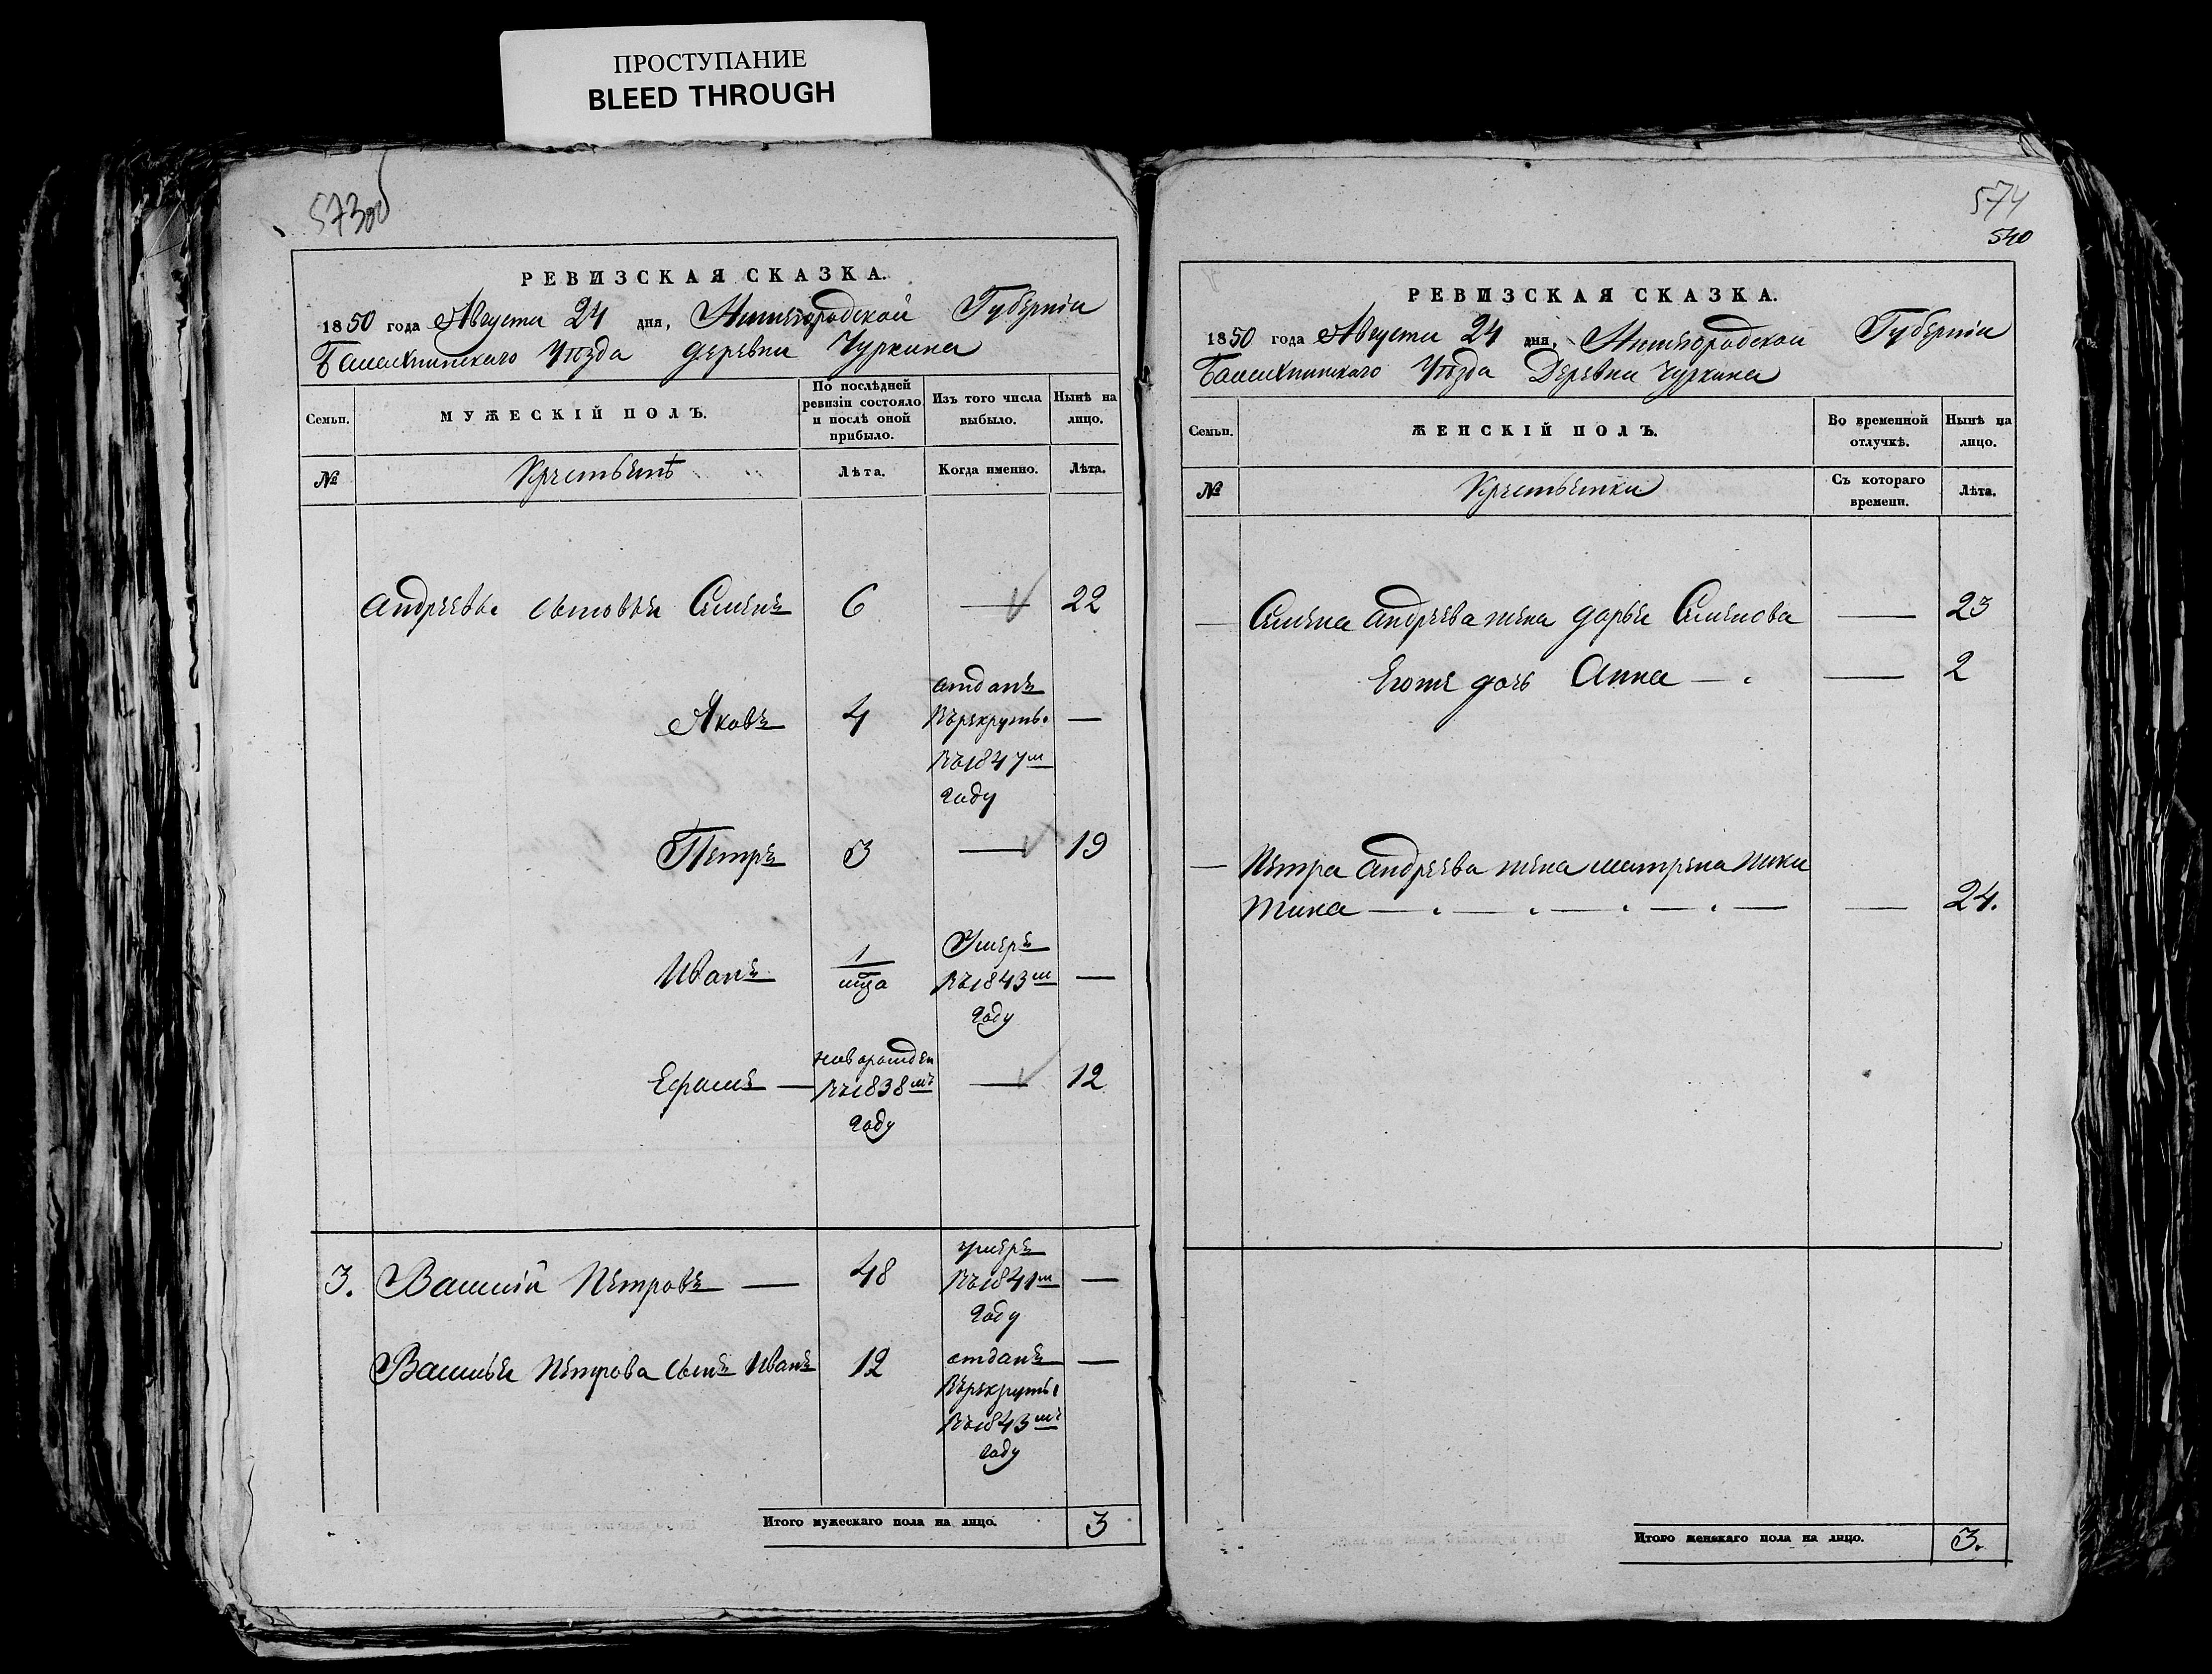 ПРОСТУПАНИЕ
BLEED THROUGH
573об
РЕВИЗСКАЯ СКАЗКА.
1850 года Августа 24 дня, Нижегородской Губерніи
Балахнинскаго Уѣзда деревни Чуркина
Семьи.
МУЖЕСКІЙ ПОЛЪ.
По послѣдней
ревизіи состояло
и послѣ оной
прибыло.
Изъ того числа
выбыло.
Нынѣ на
лицо.
№
Крестьянъ
Лѣта.
Когда именно.
Лѣта.
Андреевы сыновья Семенъ 6 — 22
Яковъ 4 отданъ —
Врекруты
въ 1847м
году
Петръ 3 — 19
Иванъ 1 Умеръ —
въ 1843м
году
Ефимъ — новорожден — 12
въ 1838мъ
году
3. Василій Петровъ — 48 умеръ —
въ 1841м
году
Василья Петрова сынъ Иванъ 12 отданъ —
Врекруты
въ 1843мъ
году
Итого мужескаго пола на лицо. 3
574
540
РЕВИЗСКАЯ СКАЗКА.
1850 года Августа 24 дня, Нижегородской Губерніи
Балахнинскаго Уѣзда Деревни Чуркина
Семьи.
ЖЕНСКІЙ ПОЛЪ.
Во временной
отлучкѣ.
Нынѣ на
лицо.
№
Крестьянки
Съ котораго
времени.
Лѣта.
— Семена Андреева жена Дарья Семенова — 23
Егоже дочь Анна — — 2
— Петра Андреева жена матрена Ники
тина — — — — — — 24.
Итого женскаго пола на лицо. 3.